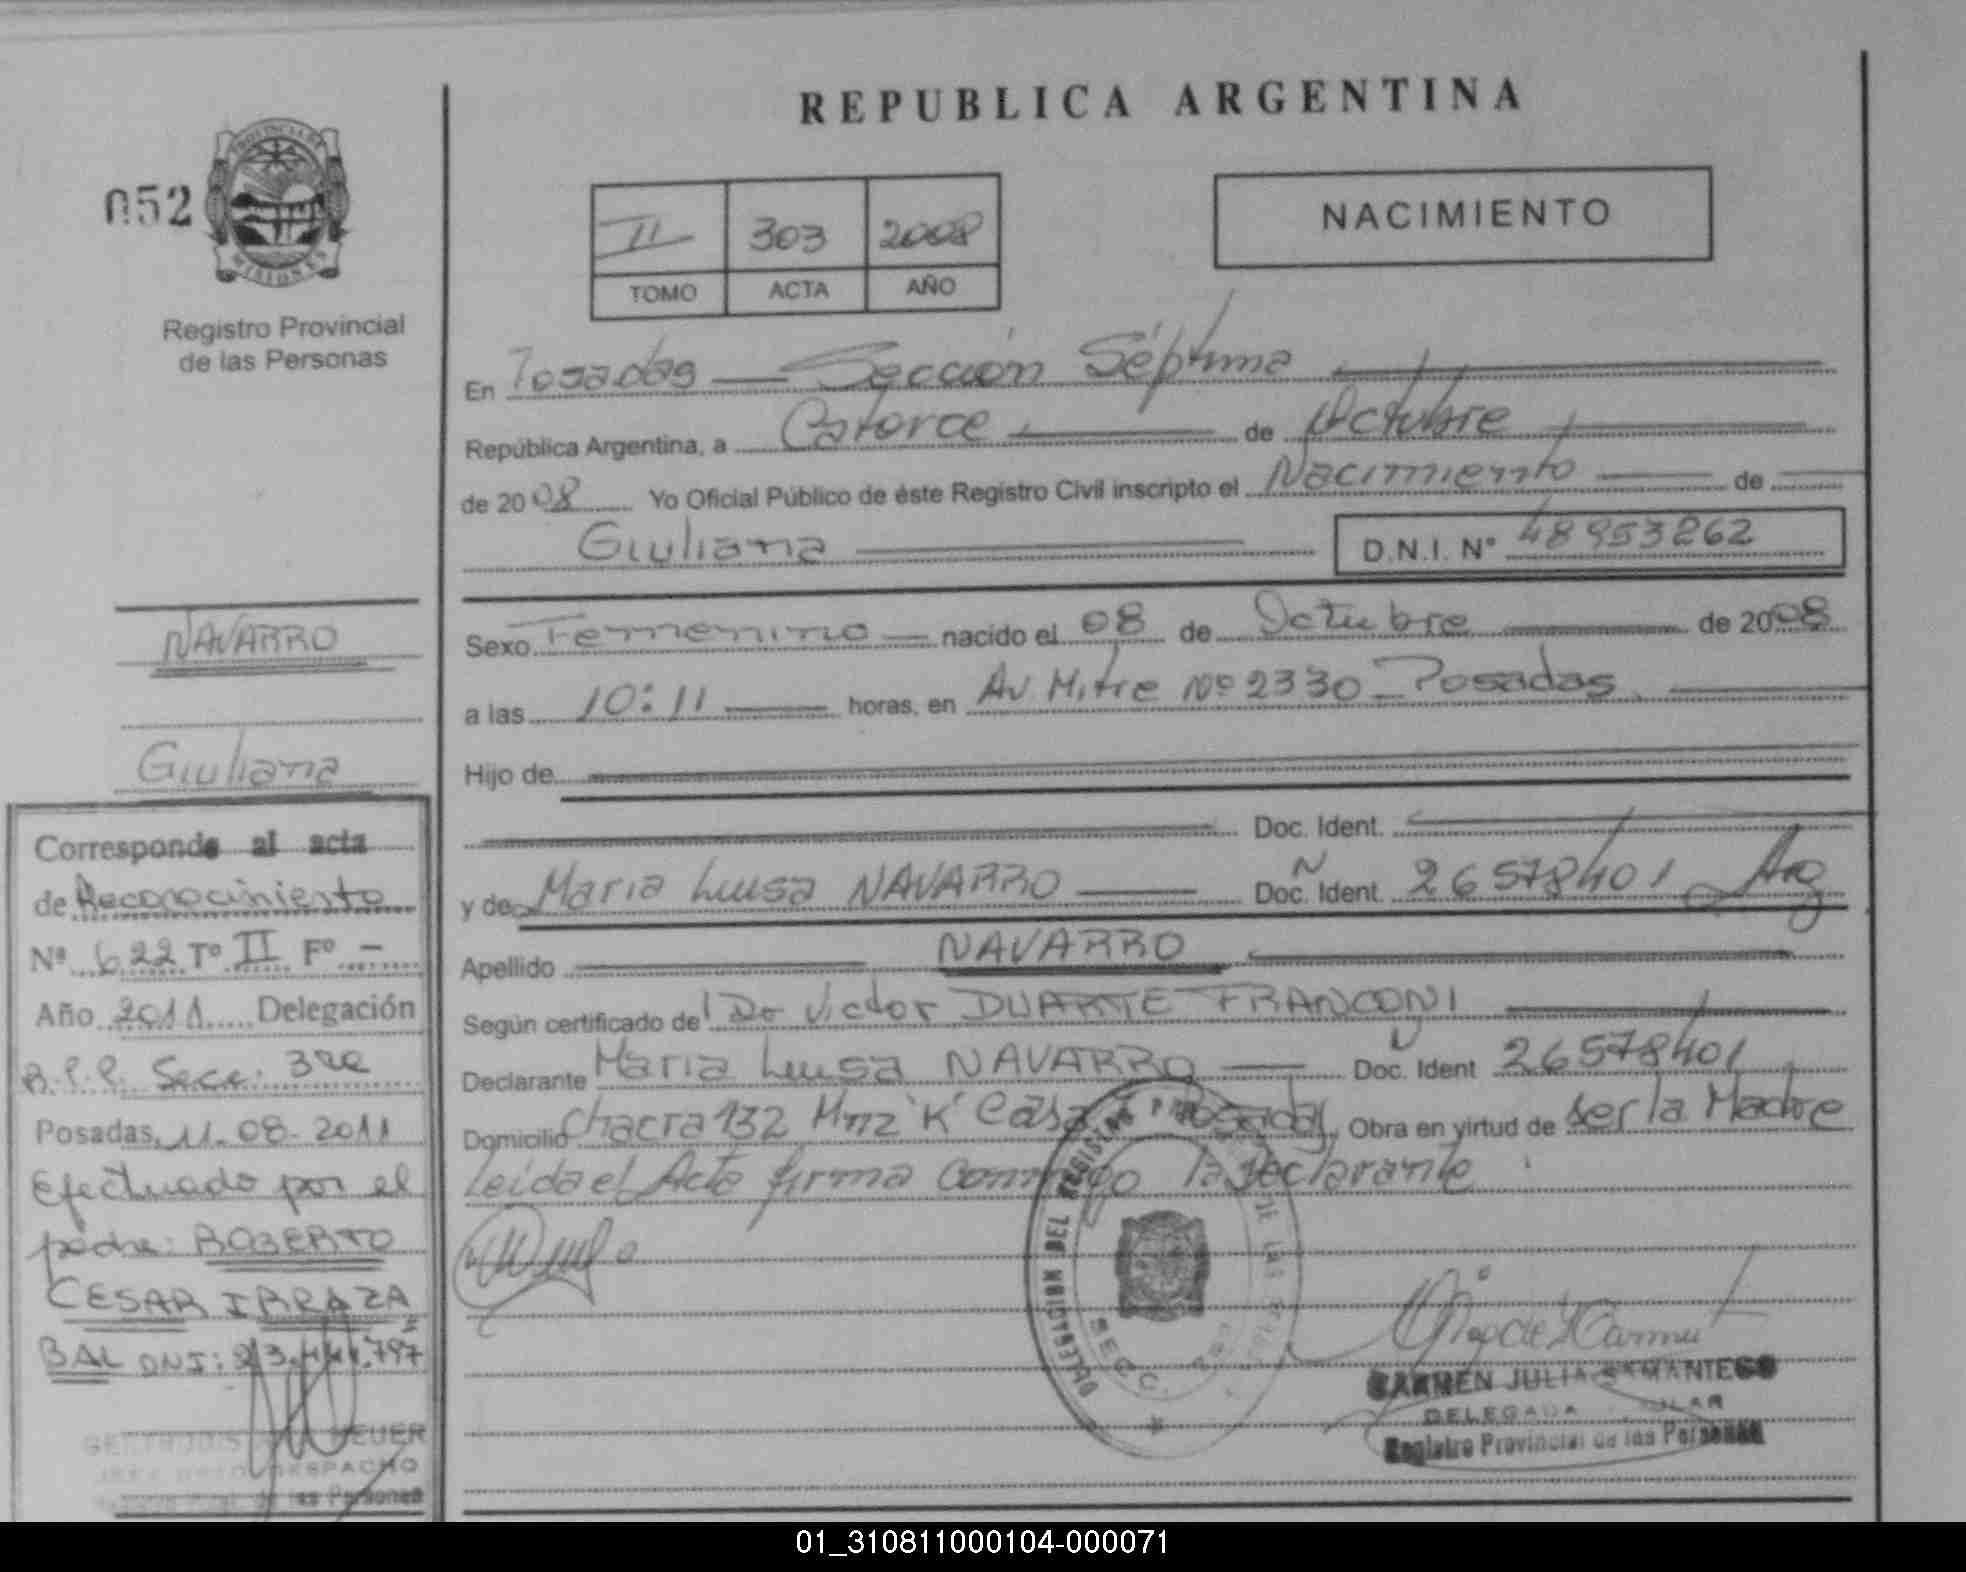 REPUBLICA ARGENTINA
052
PROVINCIA DE
MISIONES
Registro Provincial
de las Personas
II 303 2008
TOMO ACTA AÑO
NACIMIENTO
En Posadas Sección Séptima
República Argentina, a Catorce de Octubre
de 2008 Yo Oficial Público de éste Registro Civil inscripto el Nacimiento de
Giuliana D.N.I. Nº 48953262
Sexo Femenino nacido el 08 de Octubre de 2008
a las 10:11 horas, en Av Mitre Nº 2330 - Posadas
Hijo de
Doc. Ident.
y de Maria Luisa NAVARRO Doc. Ident. 26578401 Arg
Apellido NAVARRO
Según certificado del Dr Victor DUARTE FRANCONI
Declarante Maria Luisa NAVARRO Doc. Ident 26578401
Domicilio Chacra 132 Mnz "K" Casa Posadas, Obra en virtud de ser la Madre
Leida el Acta firma conmigo la declarante
NAVARRO
Giuliana
Corresponde al acta
de Reconocimiento
Nº 622 Tº II Fº -
Año 2011 Delegación
R.P.P. Secc. 3ra
Posadas, 11-08-2011
Efectuado por el
padre: ROBERTO
CESAR IRRAZA
BAL DNI:
DESPACHO
de las Personas
DELEGACION DEL REGISTRO
DE LAS
SECC.
CARMEN JULIA SAMANIEGO
DELEGADA
Registro Provincial de las Personas
01_310811000104-000071